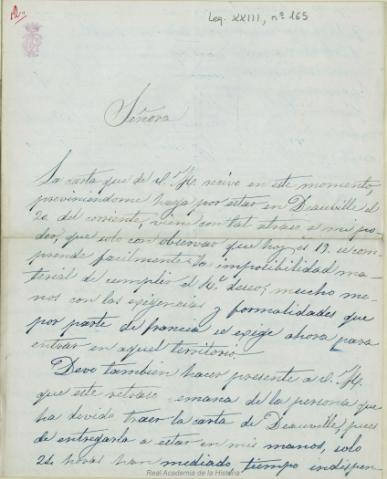 Leg. XXIII, nº 165
Señora
La carta que de S. M. recivo en este momento,
previniendome haga por estar en Deauville el
20 del corriente, viene con tal atraso a mi po-
der, que solo con observar que hoy es 19. se com-
prende facilmente la imposibilidad ma-
terial de cumplir el deseo, mucho me-
nos con las exigencias y formalidades que
por parte de francia se exige ahora para
entrar en aquel territorio.
Devo tambien hacer presente a S. M.
que este retraso emana de la persona que
ha devido traer la carta de Deauville, pues
de entregarla a estar en mis manos, solo
24 horas han mediado, tiempo indispen-
Real Academia de la Historia